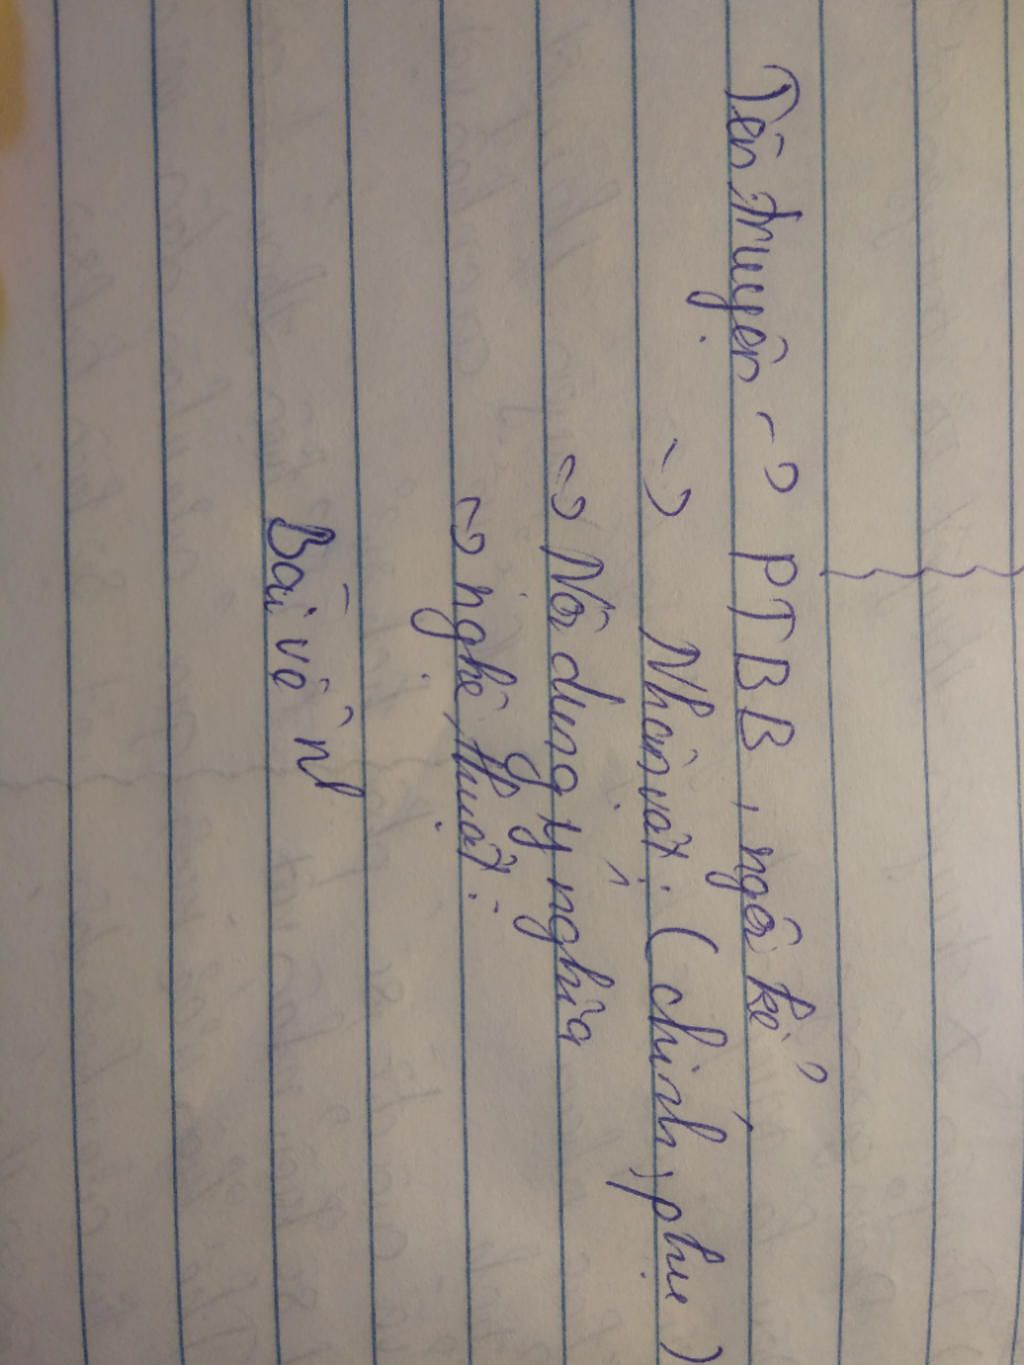 Tên truyện -> PTBB, ngôi kể
-> Nhân vật: (chính, phụ)
-> Nội dung ý nghĩa
-> nghệ thuật:
Bài về nh